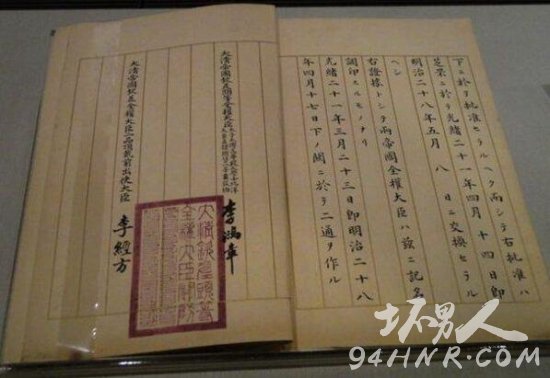 下ニ於テ批准セラルヘク而シテ右批准ハ
芝罘ニ於テ光緒二十一年四月 十四日即
明治二十八年五月 八 日ニ交換セラル
ヘシ
右證據トシテ兩帝國全權大臣ハ茲ニ記名
調印スルモノナリ
光緒二十一年三月二十三日即明治二十八
年四月十七日下ノ關ニ於テ二通ヲ作ル
大清帝國欽差頭等全權大臣 李鴻章
大清帝國欽差全權大臣二品頂戴前出使大臣 李經方
大清欽差頭等
全權大臣關防
坏男人
94HNR.COM